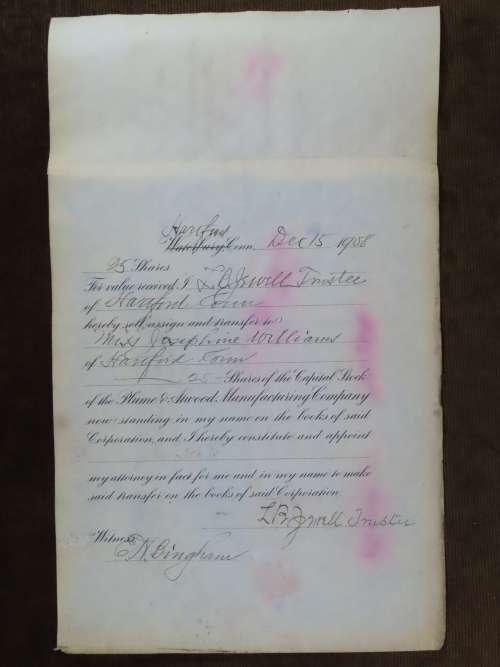 Hartford
Waterbury Conn. Dec 15 1908
25 Shares
For value received I L B Jewell Trustee
of Hartford Conn
hereby sell, assign and transfer to
Miss Josephine Williams
of Hartford Conn
25 Shares of the Capital Stock
of the Plume & Atwood Manufacturing Company
now standing in my name on the books of said
Corporation, and I hereby constitute and appoint
my attorney in fact for me and in my name to make
said transfer on the books of said Corporation
L. B. Jewell Trustee
Witness
Bingham